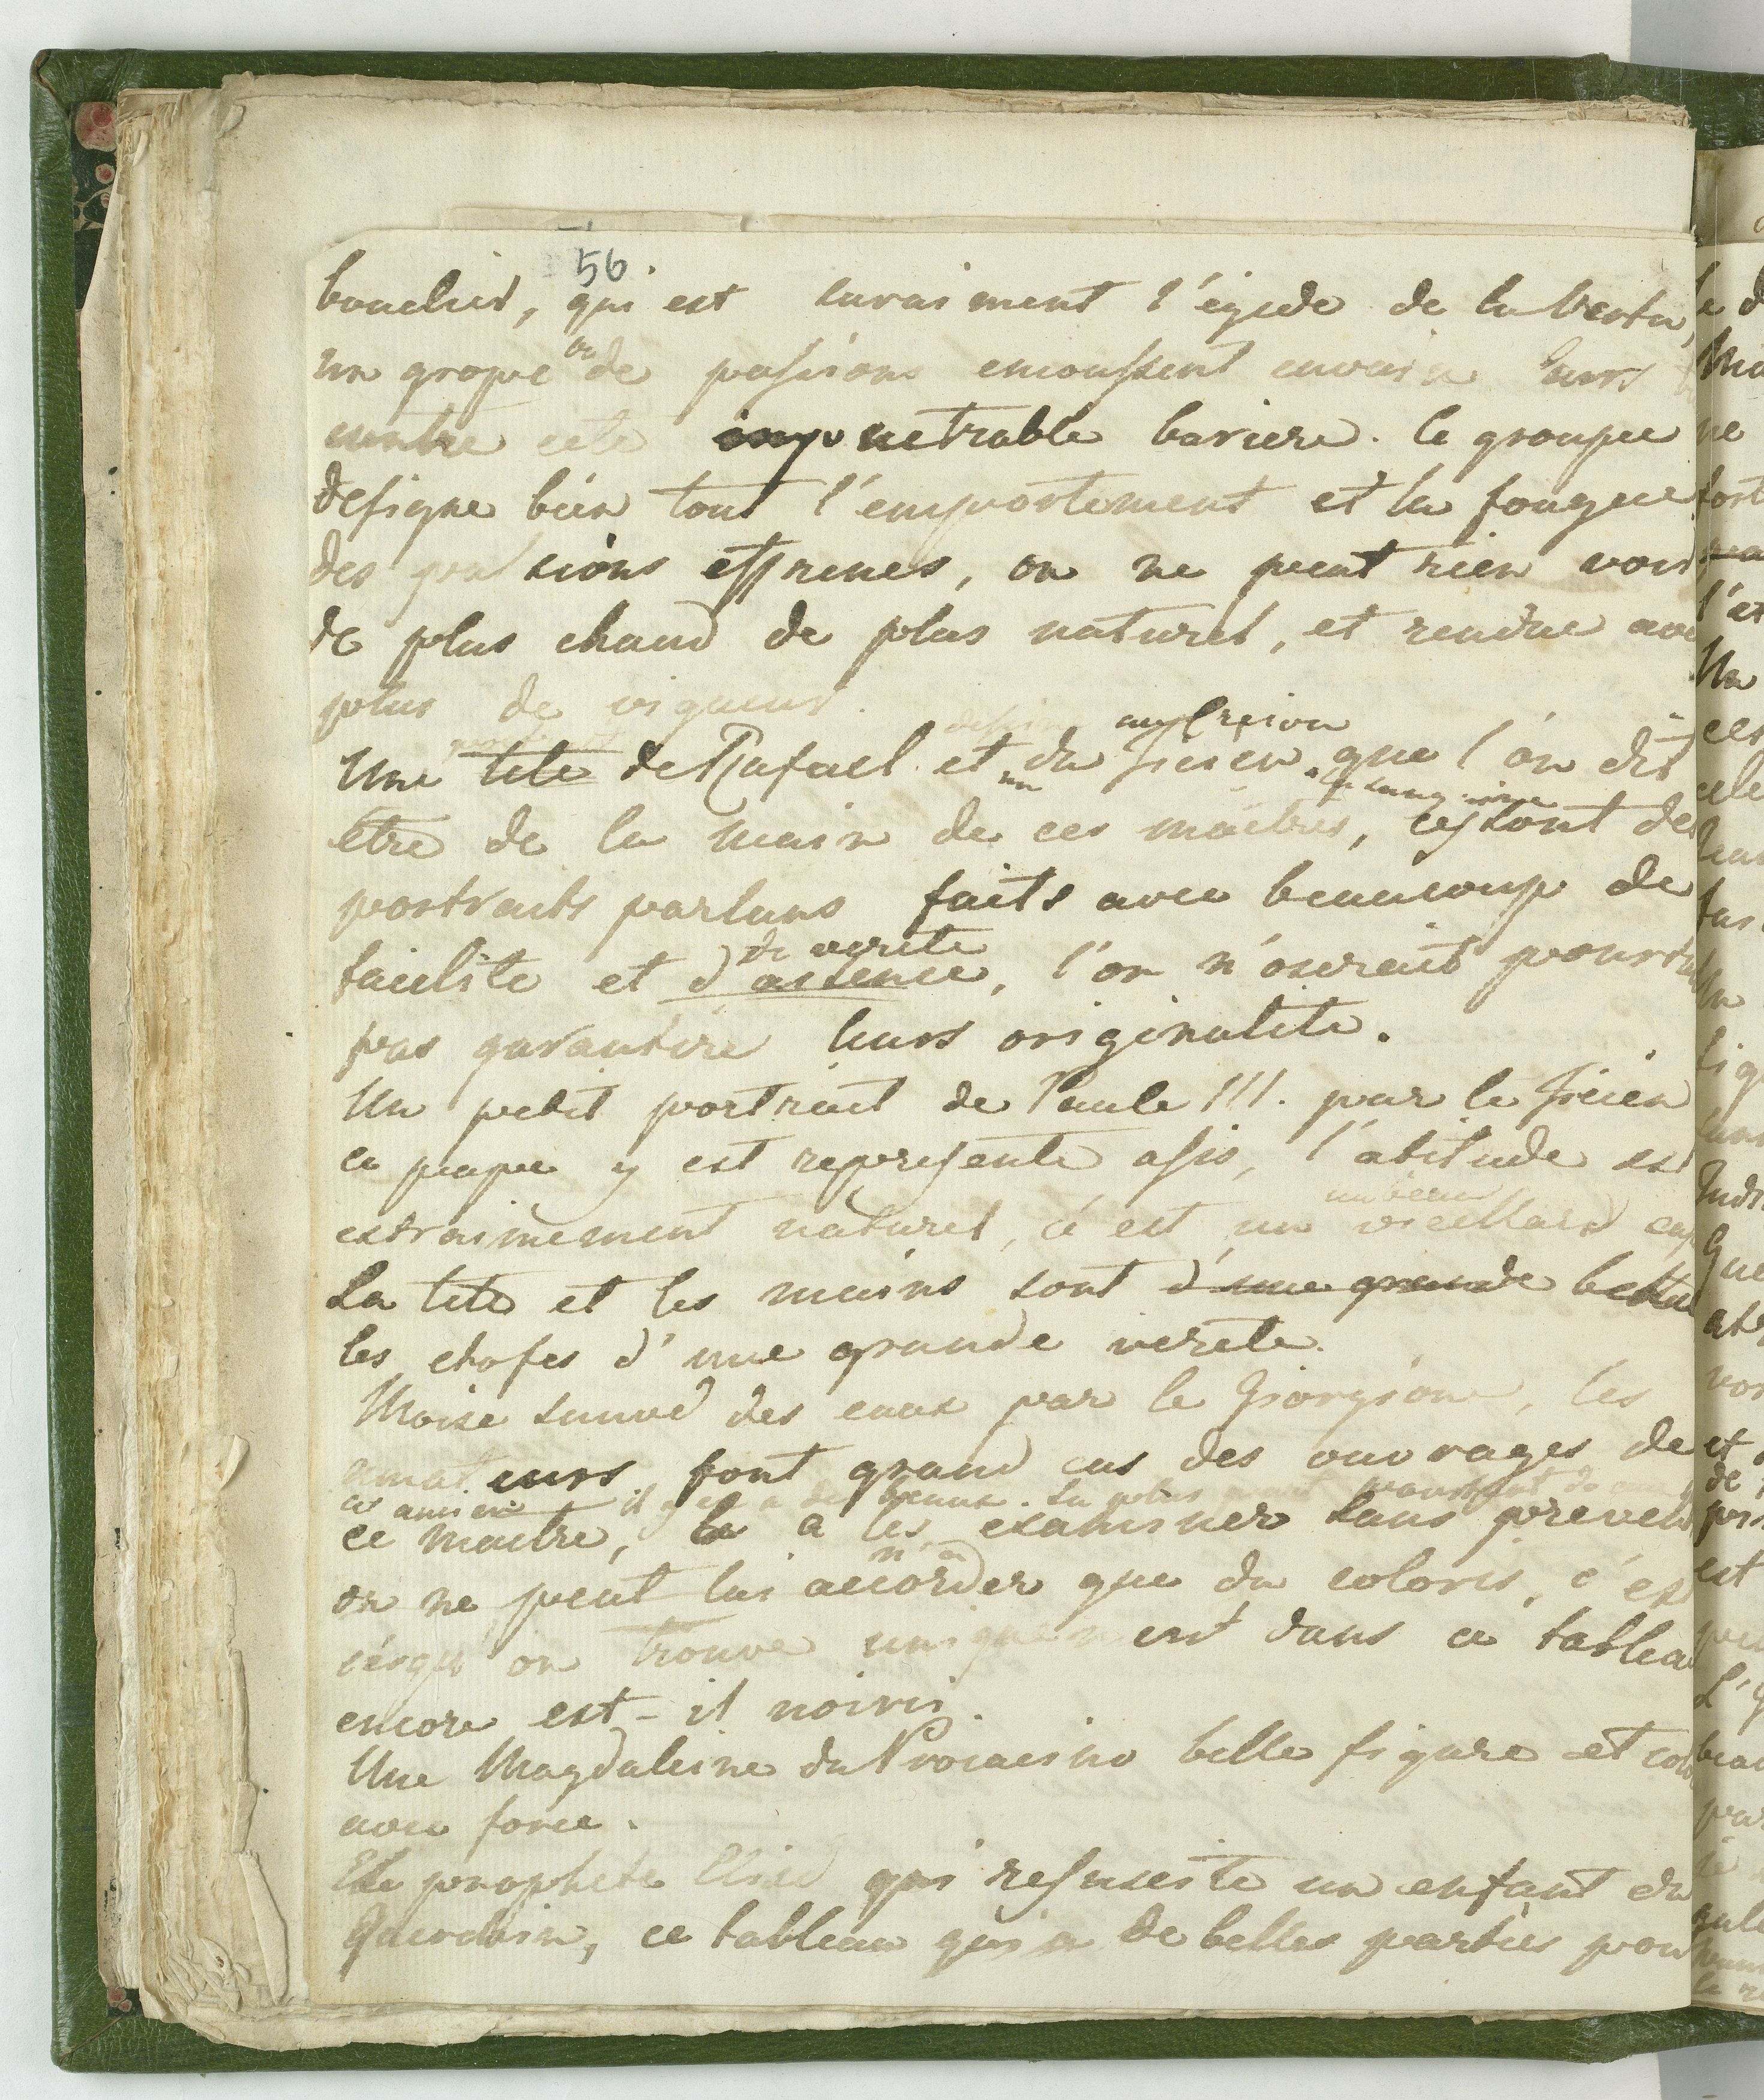 56
bouclier, qui est suraiment l'égide de la Vertu,
un grope de passions emoussent envain leurs
contre cete impenetrable bariere. Ce groupe
designe bien tout l'emportement et la fougue
des passions effrenes, on ne peut rien voir
de plus chaud de plus naturel, et rendue avec
plus de vigueur.
Une tete de Rafael et du Ticien que l'on dit
etre de la main de ces maitres, ce sont des
portraits parlans faits avec beaucoup de
de verite
facilite et d'assence, l'on n'oserait pourtant
pas garantire leurs originalite.
Un petit portrait de Paule III. par le Ticien
ce pape y est represente assis, l'atitude est
un beau
extraimement naturel, c'est un vieillard
La tete et les mains sont d'une grande beauté
les etofes d'une grande verete.
Moise sauvé des eaux par le Giorgione, les
amateurs font grand cas des ouvrages de
ce ancien il y en a de beaux. La plus
ce maitre, a les examiner sans preven
on ne peut lui accorder que du coloris, c'est
on trouve uniquement dans ce tableau
encore est-il noirci.
Une Magdaleine du Procacino belle figure et
avec force.
Le prophete Elie qui resuscite un enfant du
Guerchin, ce tableau qui a de belles parties